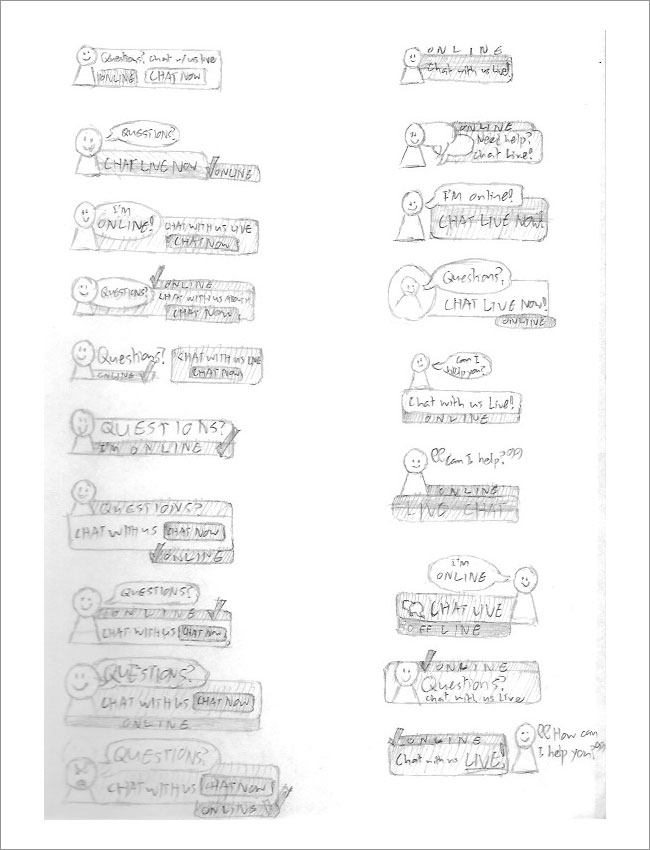 Questions? Chat w/us live
ONLINE CHAT NOW
QUESTIONS?
CHAT LIVE NOW
ONLINE
I'M
ONLINE!
CHAT WITH US LIVE
CHAT NOW
ONLINE
QUESTIONS?
CHAT WITH US
CHAT NOW
Questions?
ONLINE
CHAT WITH US LIVE
CHAT NOW
QUESTIONS?
I'M ONLINE
QUESTIONS?
CHAT WITH US CHAT NOW
ONLINE
QUESTIONS?
ONLINE
CHAT WITH US CHAT NOW
QUESTIONS?
CHAT WITH US CHAT NOW
ONLINE
QUESTIONS?
CHAT WITH US CHAT NOW
ONLINE
ONLINE
Chat with us Live!
ONLINE
Need help?
Chat Live!
I'M online!
CHAT LIVE NOW!
Questions?
CHAT LIVE NOW!
ONLINE
Can I
help you?
Chat with us Live!
ONLINE
"Can I help?"
ONLINE
LIVE CHAT
I'M
ONLINE
CHAT LIVE
OFFLINE
ONLINE
Questions?
Chat with us Live
ONLINE
Chat with us LIVE!
"How can
I help you?"